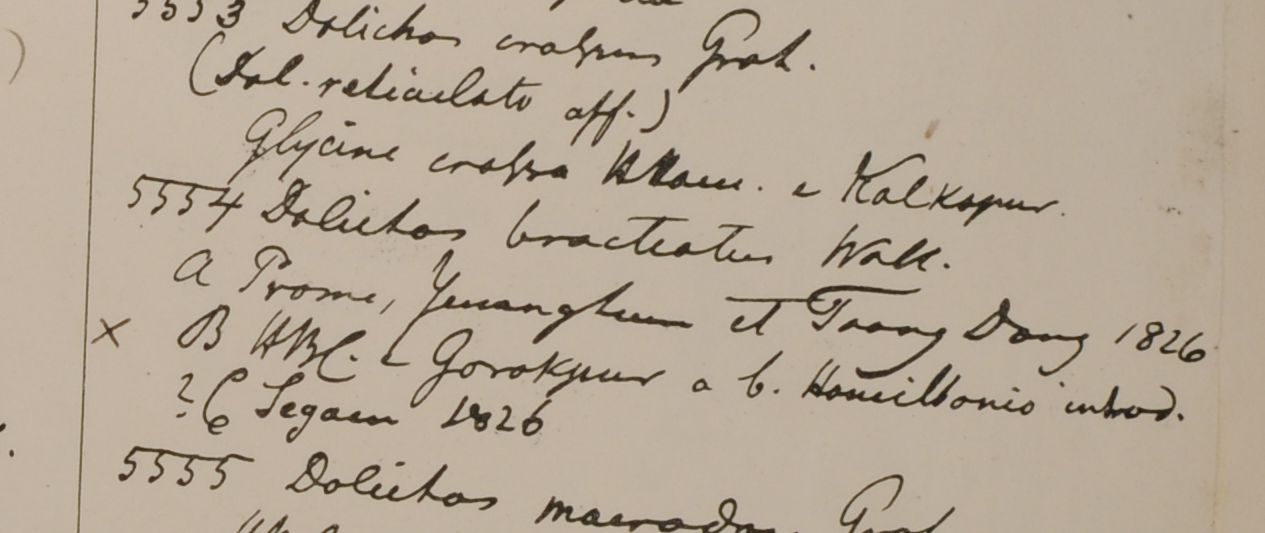 5553 Dolichos crassus Grah.
(Dol. reticulato aff.)
Glycine crassa HHam. e Kalkapur.
5554 Dolichos bracteatus Wall.
a Prome, Yenanghum et Taong Dong 1826
x B HBC. e Gorakpur a b. Hamiltonio introd.
? C Segaen 1826
5555 Dolichos macrodon Grah